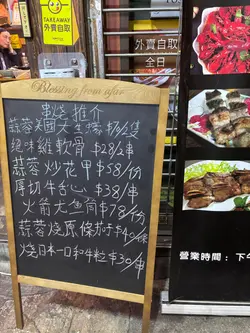 TAKEAWAY
外賣自取
外賣自取
全日
Blessing from afar
串燒推介
蒜蓉美國大生蠔 $70/2隻
絕味雞軟骨 $28/2串
蒜蓉炒花甲 $58/份
厚切牛舌心 $38/串
火箭尤魚角 $78/份
蒜蓉燒原條茄子 $40/條
燒日本一口和牛粒 $30/串
營業時間：下午